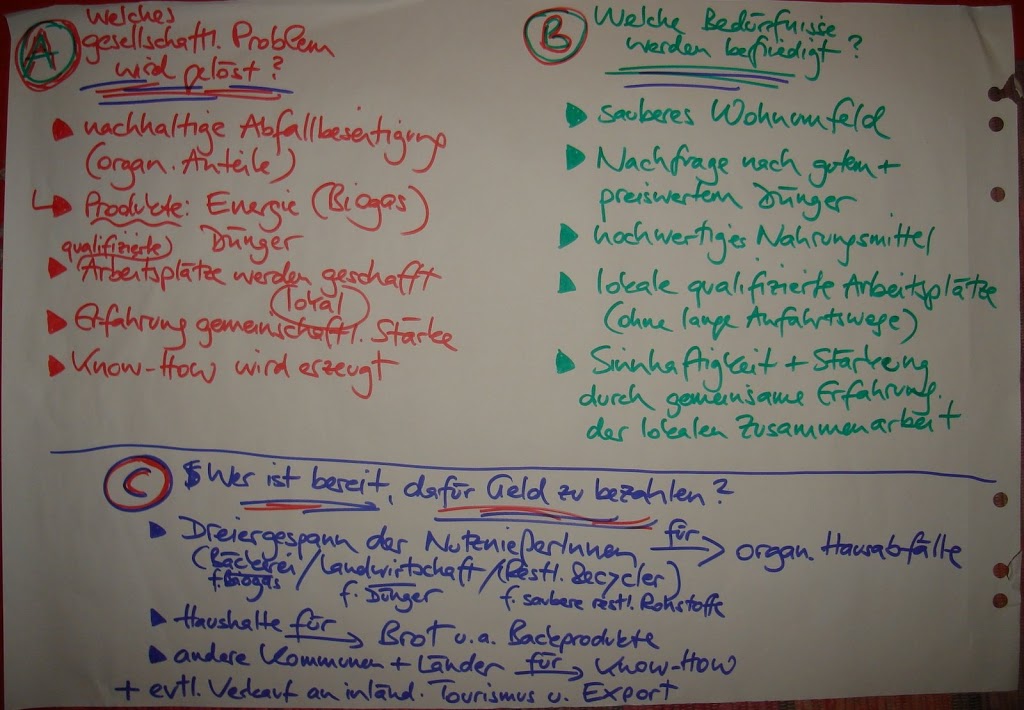 A
Welches
gesellschaftl. Problem
wird gelöst?
▶ nachhaltige Abfallbeseitigung
(organ. Anteile)
↳▶ Produkte: Energie (Biogas)
Dünger
qualifizierte)
▶ Arbeitsplätze werden geschafft
(lokal)
▶ Erfahrung gemeinschaftl. Stärke
▶ Know-How wird erzeugt
B
Welche Bedürfnisse
werden befriedigt?
▶ sauberes Wohnumfeld
▶ Nachfrage nach gutem +
preiswertem Dünger
▶ hochwertiges Nahrungsmittel
▶ lokale qualifizierte Arbeitsplätze
(ohne lange Anfahrtswege)
▶ Sinnhaftigkeit + Stärkung
durch gemeinsame Erfahrung.
der lokalen Zusammenarbeit
C
Wer ist bereit, dafür Geld zu bezahlen?
▶ Dreiergespann der NutznießerInnen für → organ. Hausabfälle
(Bäckerei / Landwirtschaft / (Restl. Recycler)
f. Biogas f. Dünger f. saubere restl. Rohstoffe
▶ Haushalte für → Brot u. a. Backprodukte
▶ andere Kommunen + Länder für → Know-How
+ evtl. Verkauf an inländ. Tourismus u. Export